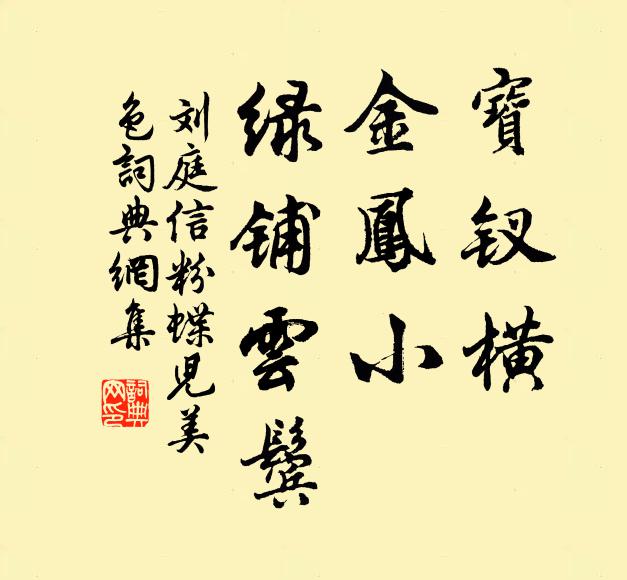 寶釵橫
金鳳小
緑铺雲鬓
刘庭信粉蝶児美
色詞典網集
詞典
网印